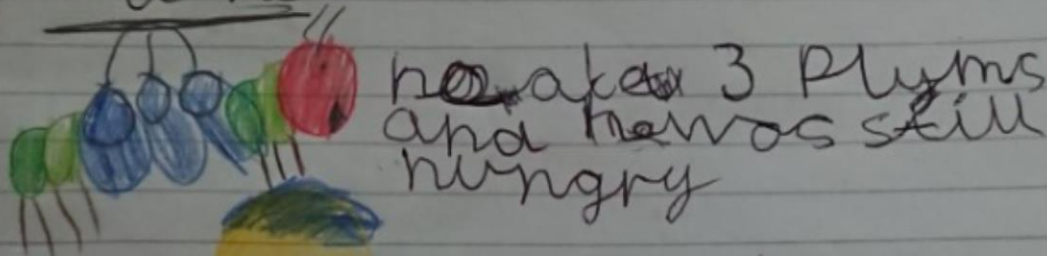 he ate 3 Plums
and he was still
hungry